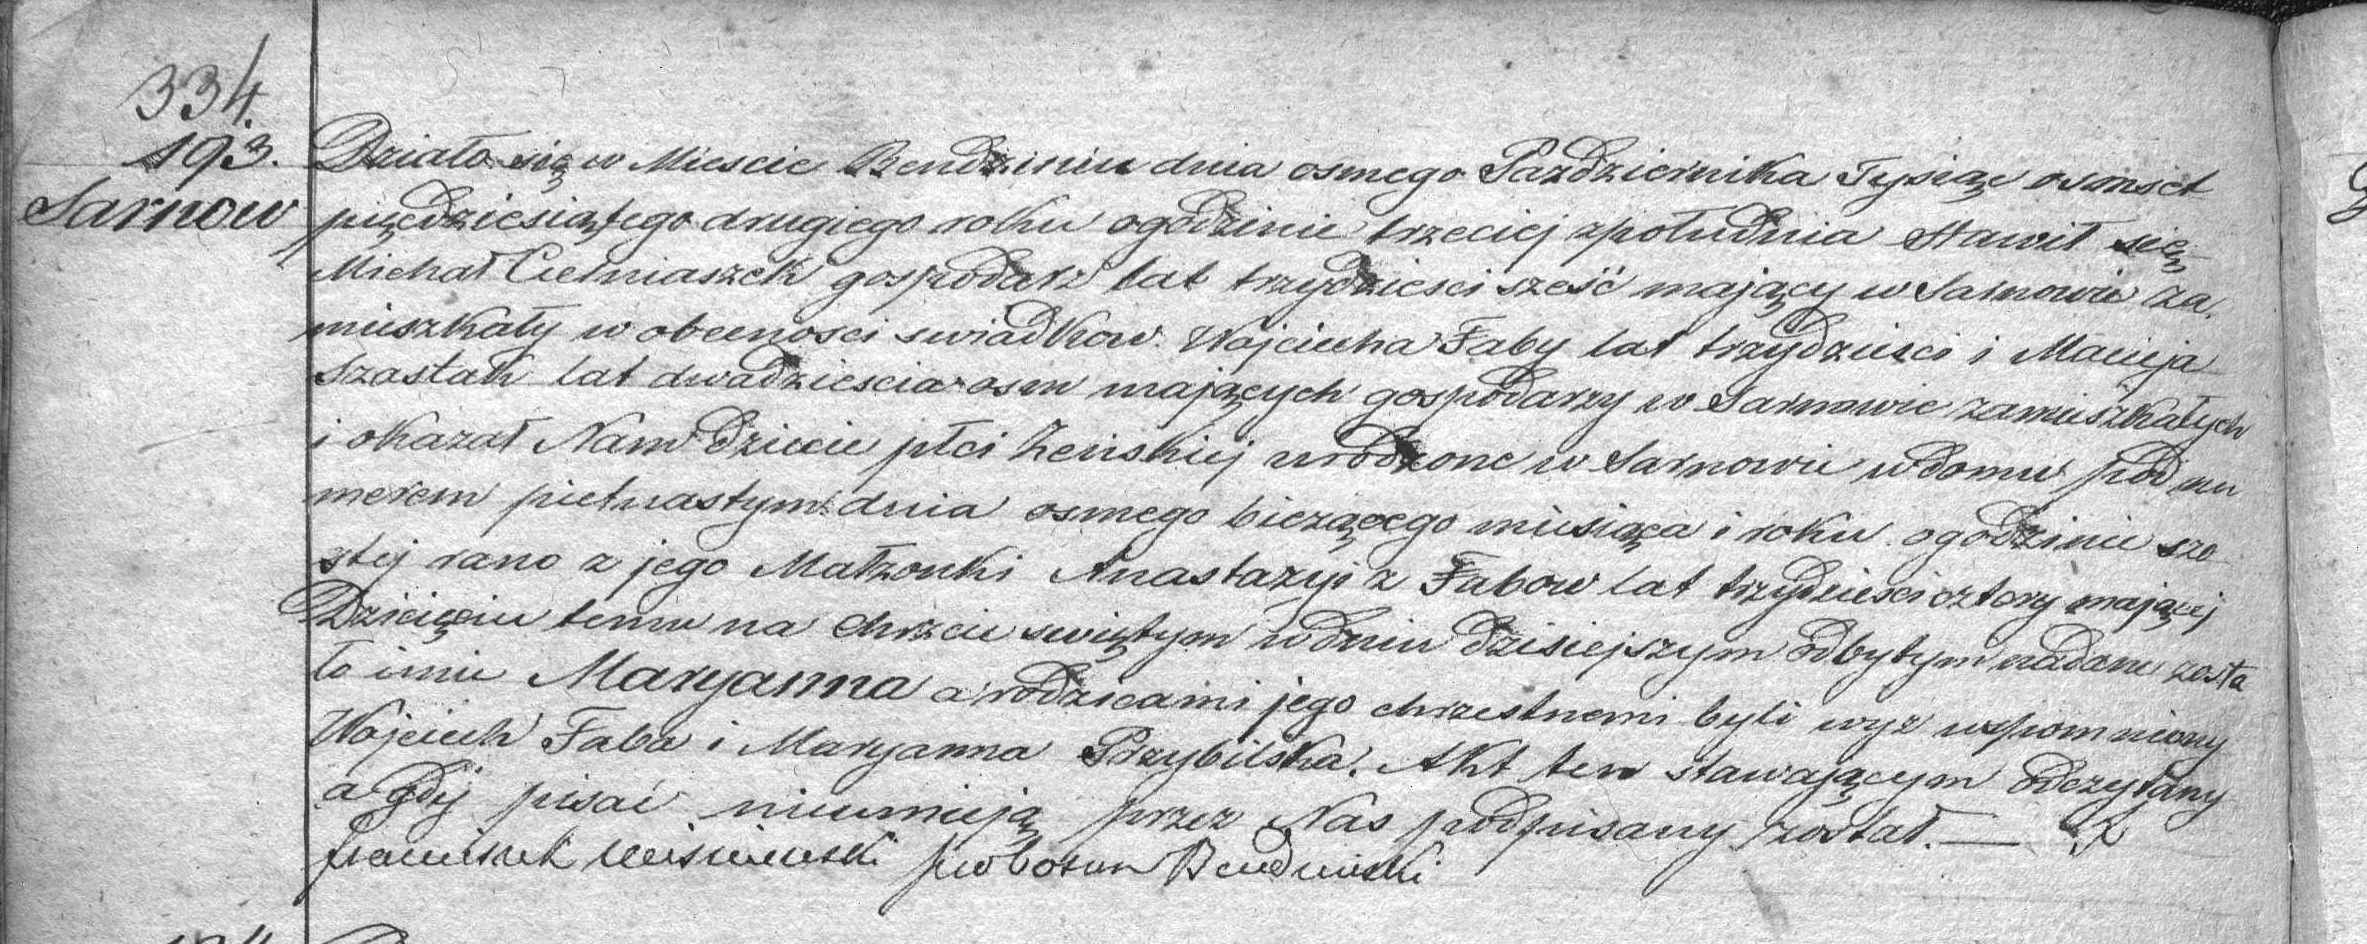 334.
193.
Sarnow
Działo się w Miescie Bendzinie dnia osmego Pazdziernika Tysiąc osmset
pięcdziesiątego drugiego roku ogodzinie trzeciej zpołudnia Stawił się
Michał Celniaszek gospodarz lat trzydziesci sześć mający w Sarnowie za.
mieszkały w obecnosci swiadkow. Wojciecha Faby lat trzydziesci i Macieja
Szastak lat dwadziescia osm mających gospodarzy w Sarnowie zamieszkałych
i okazał Nam dziecie płci Zenskiej urodzone w Sarnowie w domu pod nu
merem pietnastym dnia osmego biezącego miesiąca i roku ogodzinie szo
stej rano z jego Małzonki Anastazyi z Fabow lat trzydziesci cztery mającej
Dziecięciu temu na chrzcie swiętym w dniu dzisiejszym odbytym nadane zosta
ło imie Maryanna a rodzicami jego chrzestnemi byli wyz wspomniony
Wojciech Faba i Maryanna Przybilska. Akt ten stawającym odczytany
a gdy pisać nieumieją przez Nas podpisany został. —
Franciszek proboszcz Bendzinski